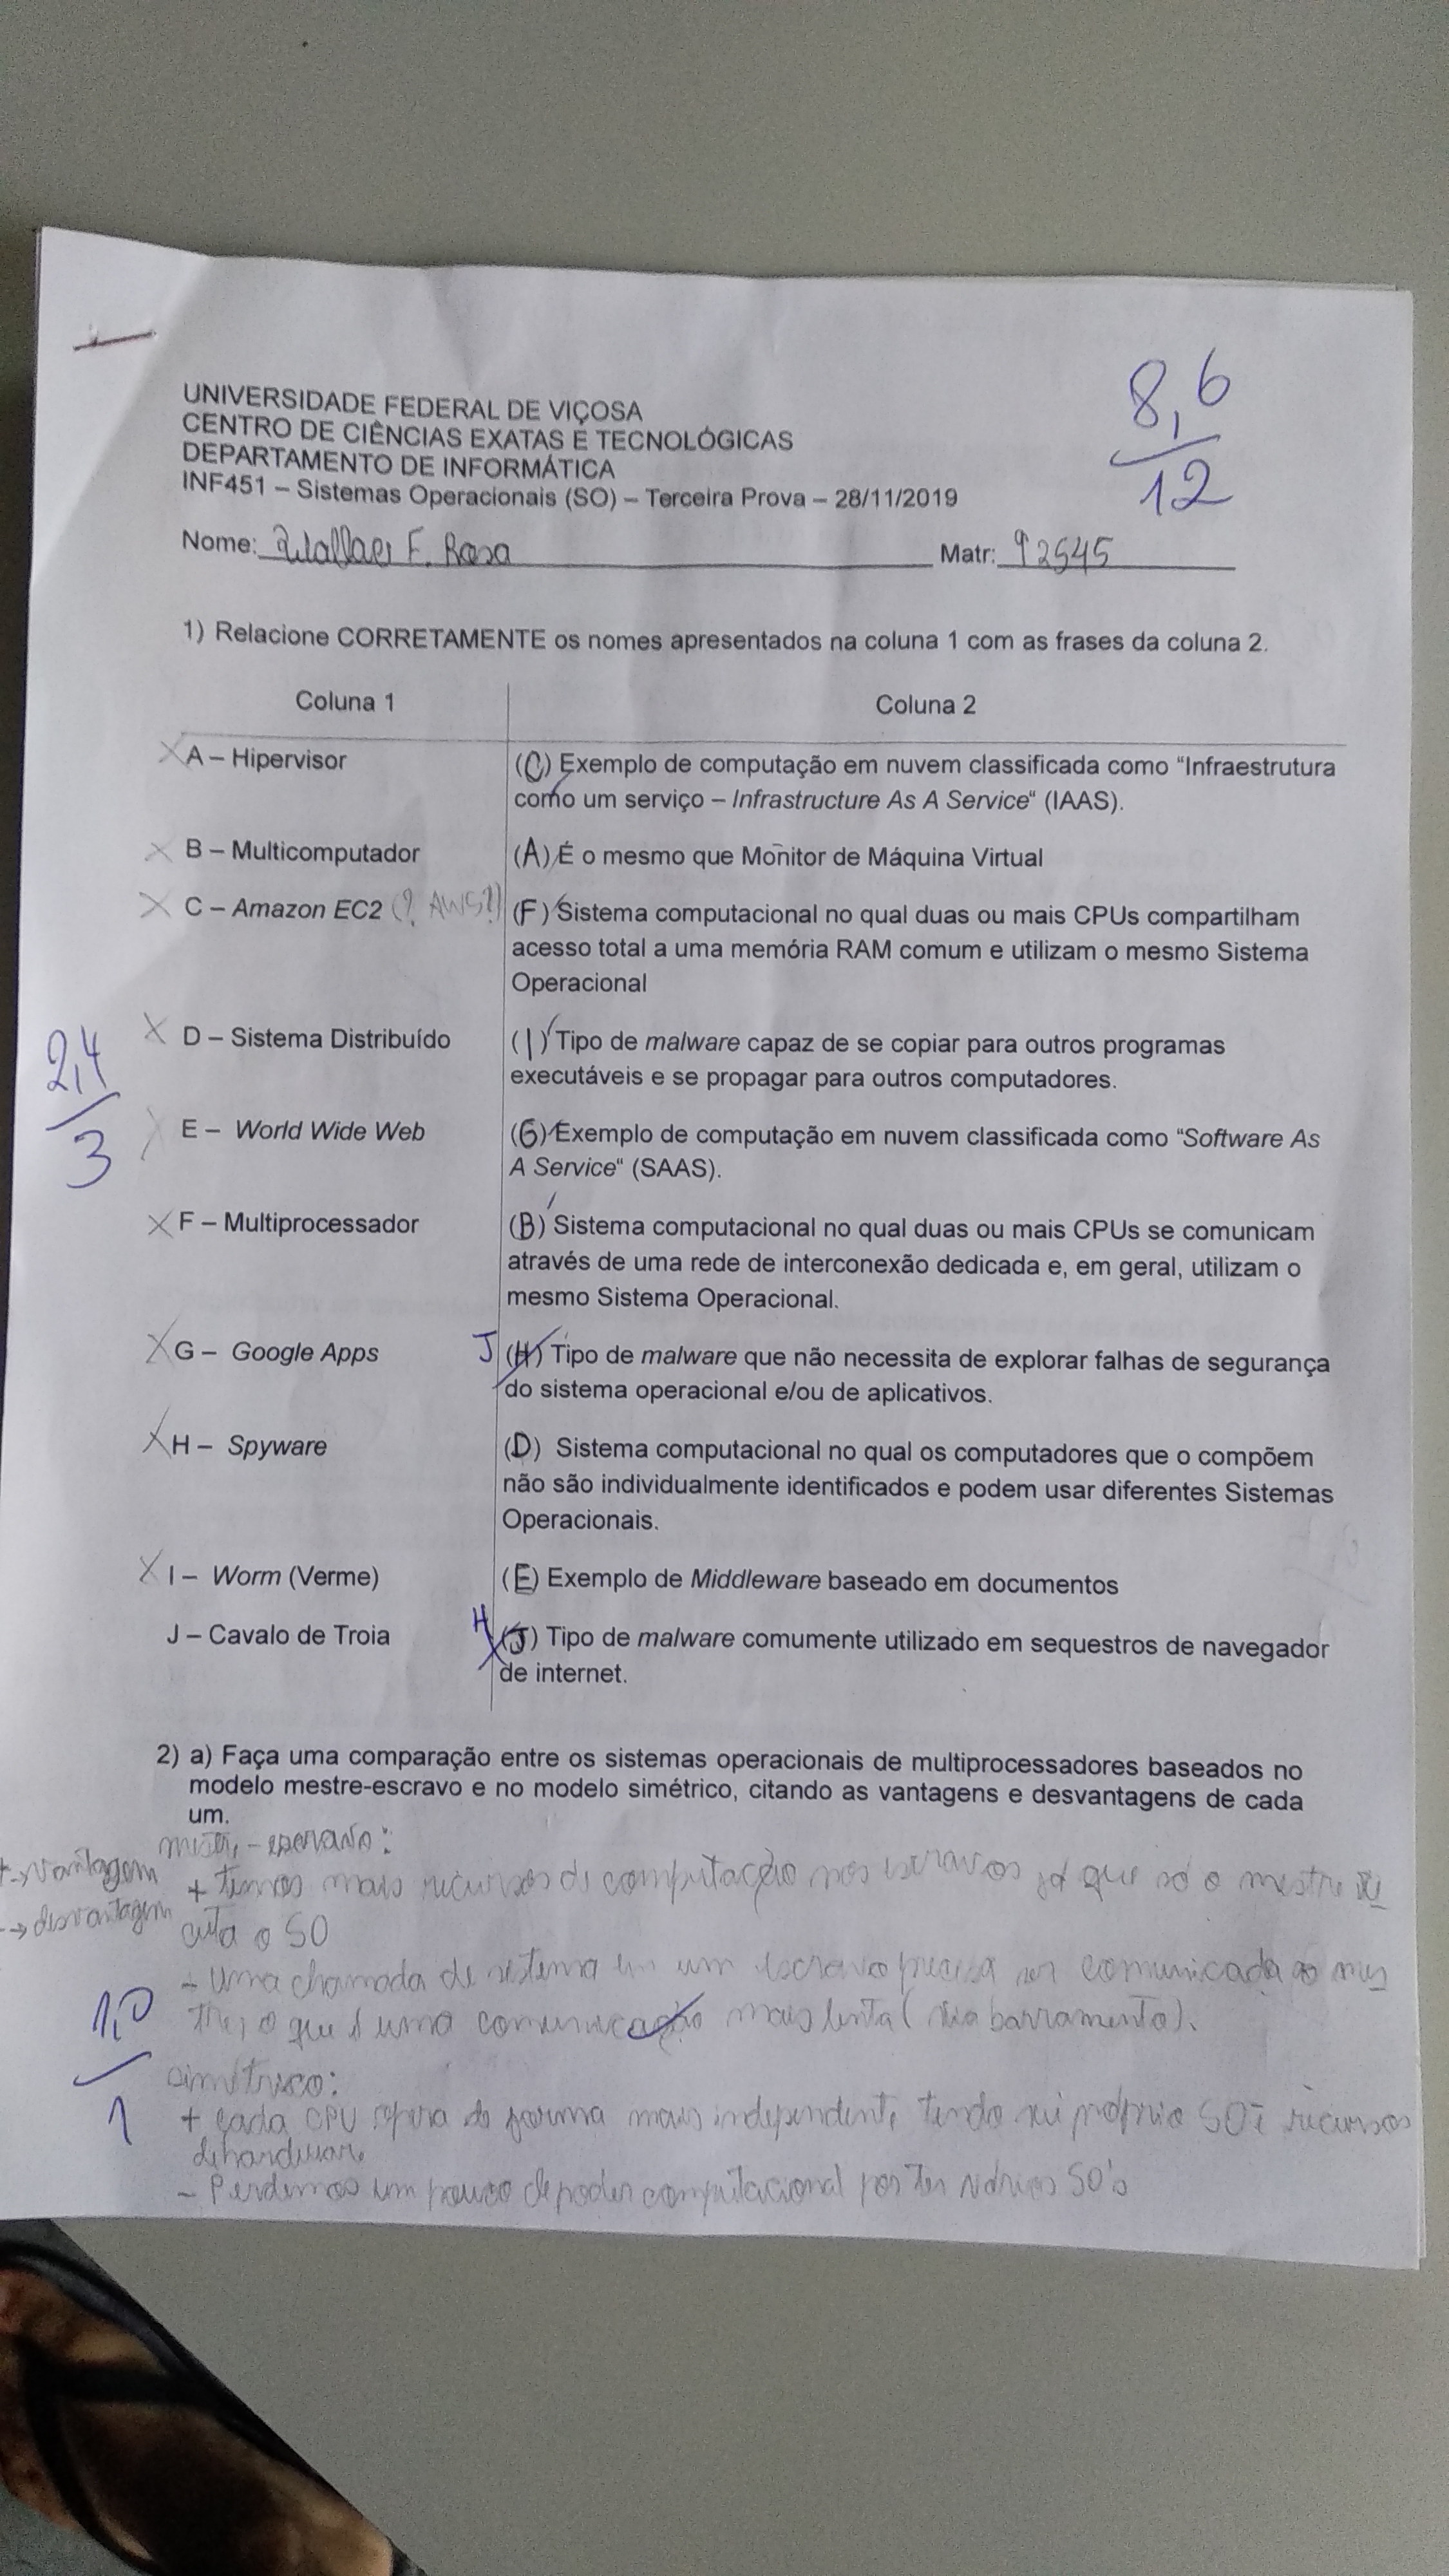 8,6
12
UNIVERSIDADE FEDERAL DE VIÇOSA
CENTRO DE CIÊNCIAS EXATAS E TECNOLÓGICAS
DEPARTAMENTO DE INFORMÁTICA
INF451 – Sistemas Operacionais (SO) – Terceira Prova – 28/11/2019
Nome: F. Rosa Matr: 92545
1) Relacione CORRETAMENTE os nomes apresentados na coluna 1 com as frases da coluna 2.
Coluna 1 Coluna 2
X A – Hipervisor (C) Exemplo de computação em nuvem classificada como “Infraestrutura
como um serviço – Infrastructure As A Service“ (IAAS).
X B – Multicomputador (A) É o mesmo que Monitor de Máquina Virtual
X C – Amazon EC2 (? AWS?) (F) Sistema computacional no qual duas ou mais CPUs compartilham
acesso total a uma memória RAM comum e utilizam o mesmo Sistema
Operacional
X D – Sistema Distribuído (I) Tipo de malware capaz de se copiar para outros programas
executáveis e se propagar para outros computadores.
2,4
3
X E – World Wide Web (G) Exemplo de computação em nuvem classificada como “Software As
A Service“ (SAAS).
X F – Multiprocessador (B) Sistema computacional no qual duas ou mais CPUs se comunicam
através de uma rede de interconexão dedicada e, em geral, utilizam o
mesmo Sistema Operacional.
X G – Google Apps J (H) Tipo de malware que não necessita de explorar falhas de segurança
do sistema operacional e/ou de aplicativos.
X H – Spyware (D) Sistema computacional no qual os computadores que o compõem
não são individualmente identificados e podem usar diferentes Sistemas
Operacionais.
X I – Worm (Verme) (E) Exemplo de Middleware baseado em documentos
J – Cavalo de Troia H (J) Tipo de malware comumente utilizado em sequestros de navegador
de internet.
2) a) Faça uma comparação entre os sistemas operacionais de multiprocessadores baseados no
modelo mestre-escravo e no modelo simétrico, citando as vantagens e desvantagens de cada
um.
mestre-escravo:
+ → vantagem
- → desvantagem
+ temos mais recursos de computação nos escravos já que só o mestre exe
cuta o SO
- Uma chamada de sistema em um escravo precisa ser comunicada ao mes
tre, o que é uma comunicação mais lenta (via barramento).
1,0
1
simétrico:
+ cada CPU opera de forma mais independente, tendo seu próprio SO e recursos
de hardware
- Perdemos um pouco de poder computacional por ter vários SO's